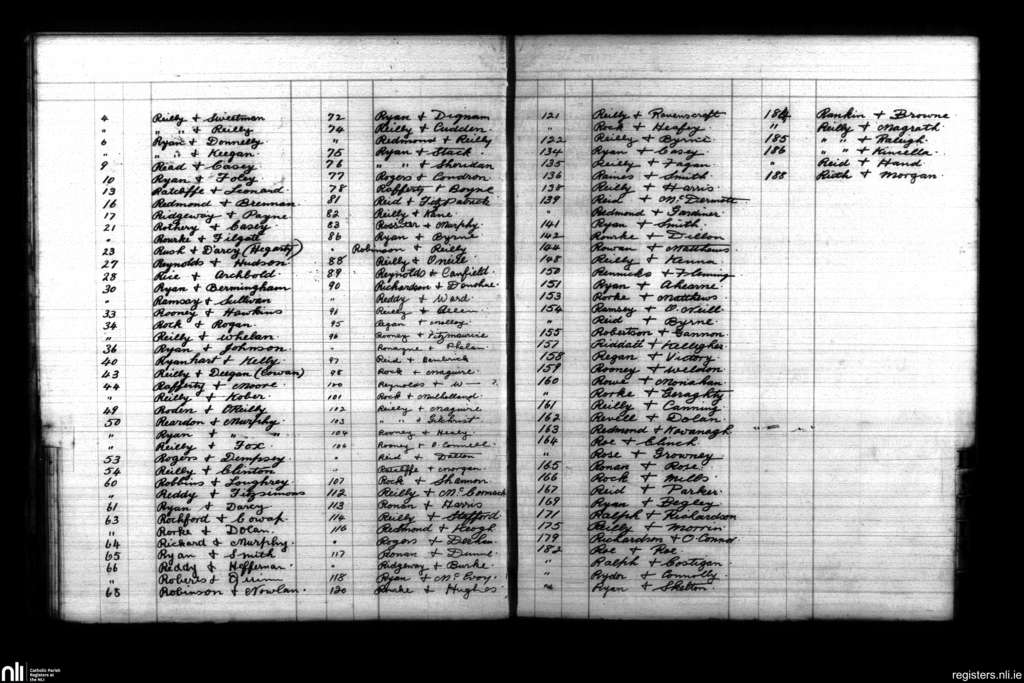 4 Reilly + Sweetman
" " " + Reilly
6 Ryan + Donnelly
" " " + Keegan
9 Read + Casey
10 Ryan + Foley
13 Ratcliffe + Leonard
16 Redmond + Brennan
17 Ridgeway + Payne
21 Rothery + Casey
" Rourke + Filgate
23 Rush + Darcy (Hegarty)
27 Reynolds + Hudson
28 Rice + Archbold
30 Ryan + Bermingham
" Ramsay + Sullivan
33 Rooney + Hawkins
34 Rock + Rogan
" Reilly + Whelan
36 Ryan + Johnson
40 Ryanhart + Kelly
43 Reilly + Deegan (Cowan)
44 Rafferty + Moore
" Reilly + Kober
49 Roden + O'Reilly
50 Reardon + Murphy
" Ryan + " "
" Reilly + Fox
53 Rogers + Dempsey
54 Reilly + Clinton
60 Robbins + Loughrey
" Reddy + Fitzsimons
61 Ryan + Darcy
63 Rochford + Cowap
" Rorke + Dolan
64 Rickard + Murphy
65 Ryan + Smith
66 Reddy + Heffernan
" Roberts +
68 Robinson + Nowlan
72 Ryan + Dignam
74 Reilly + Cudden
" Redmond + Reilly
75 Ryan + Stack
76 " + Sheridan
77 Rogers + Condron
78 Rafferty + Boyne
81 Reid + FitzPatrick
82 Reilly + Kane
83 Rossiter + Murphy
86 Ryan + Byrne
" Robinson + Reilly
88 Reilly + O'Neill
89 Reynolds + Canfield
90 Richardson + Donohoe
" Reddy + Ward
91 Reilly + Allen
95 Regan + Molloy
96 Rooney + Fitzmaurice
" Ronayne + Phelan
97 Reid +
98 Rock + Maguire
100 Reynolds + W— ?
101 Rock + Mulholland
102 Reilly + Maguire
103 " " + Gilchrist
104 Rooney + Healy
106 Rooney + O'Connell
" Reid + Dalton
" Ratcliffe + Morgan
107 Rock + Shannon
112 Reilly + McCormack
113 Ronan + Harris
114 Reilly + Stafford
116 Redmond + Keogh
" Rogers +
117 Ronan + Dunne
" Ridgeway + Burke
118 Ryan + McEvoy
120 Rourke + Hughes
121 Reilly + Ravenscraft
" Rock + Heafey
122 Reilly + Byrne
134 Ryan + Casey
135 Reilly + Fagan
136 Raines + Smith
138 Reilly + Harris
139 Reid + McDermott
" Redmond + Gardiner
141 Ryan + Smith
142 Rourke + Dillon
144 Rowan + Matthews
148 Reilly + Kenna
150 Rennicks + Fleming
151 Ryan + Ahearne
153 Rorke + Matthews
154 Ramsey + O'Neill
" Reid + Byrne
155 Robertson + Gannon
157 Riddall + Kelligher
158 Regan + Victory
159 Rooney + Weldon
160 Rowe + Monahan
" Rorke + Geraghty
161 Reilly + Canning
162 Revill + Dolan
163 Redmond + Kavanagh
164 Roe + Clinch
" Rose + Growney
165 Ronan + Rose
166 Rock + Mills
167 Reid + Parker
169 Ryan + Begley
171 Ralph + Richardson
175 Reilly + Morrin
179 Richardson + O'Connor
182 Roe + Roe
" Ralph + Costigan
" Rydor + Connolly
" Ryan + Skelton
184 Rankin + Browne
" Reilly + Magrath
185 " " + Raleigh
186 " " + Kinsella
" Reid + Hand
188 Rieth + Morgan
nli Catholic Parish Registers at the NLI
registers.nli.ie